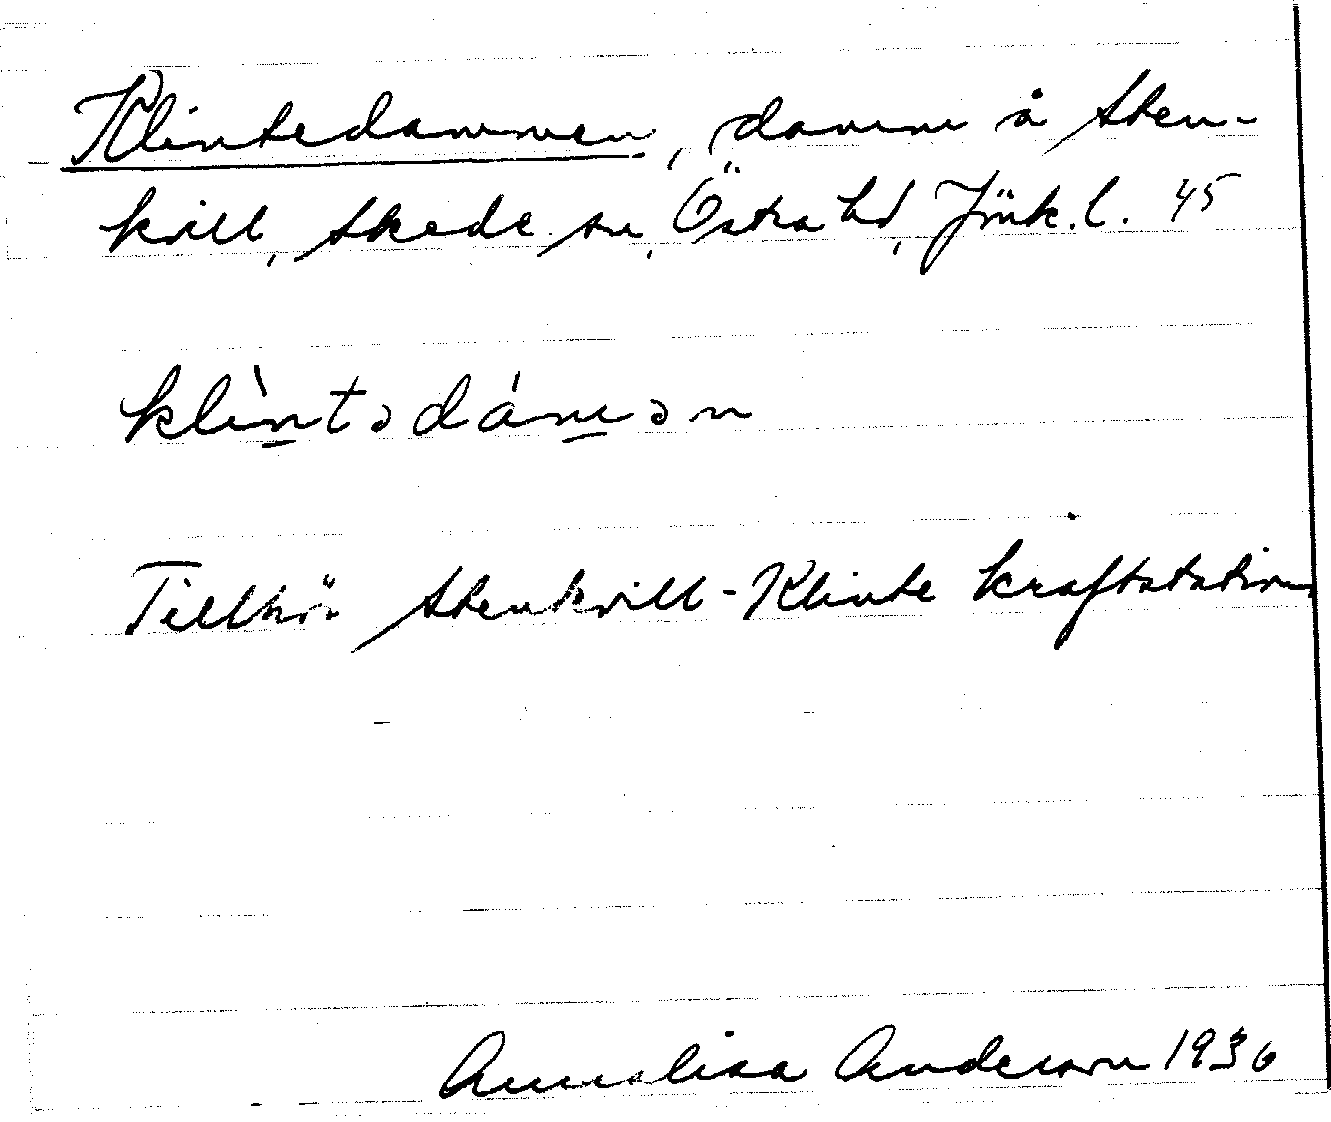 Klintedammen, damm å Sten-
kvill, Skede sn, Östra hd, Jönk. l. 45
klìn̲tədám̲ən
Tillhör Stenkvill-Klinte kraftstation
Annalisa Anderson 1936